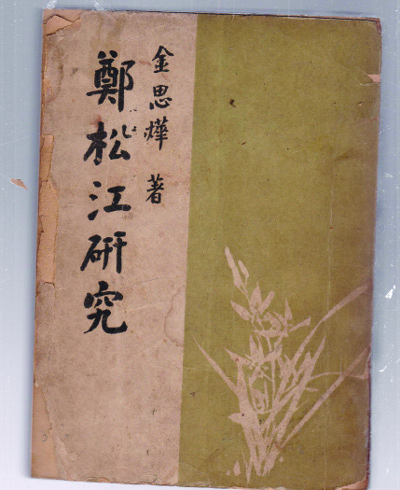 金思燁 著
鄭松江硏究